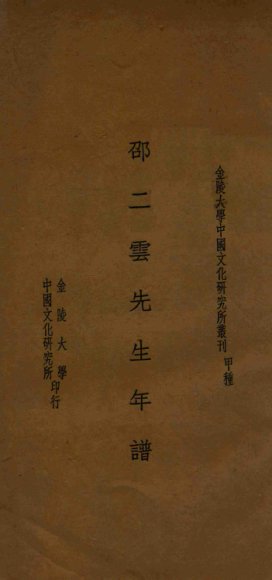 金陵大學中國文化研究所叢刊 甲種
邵二雲先生年譜
金陵大學
中國文化研究所印行